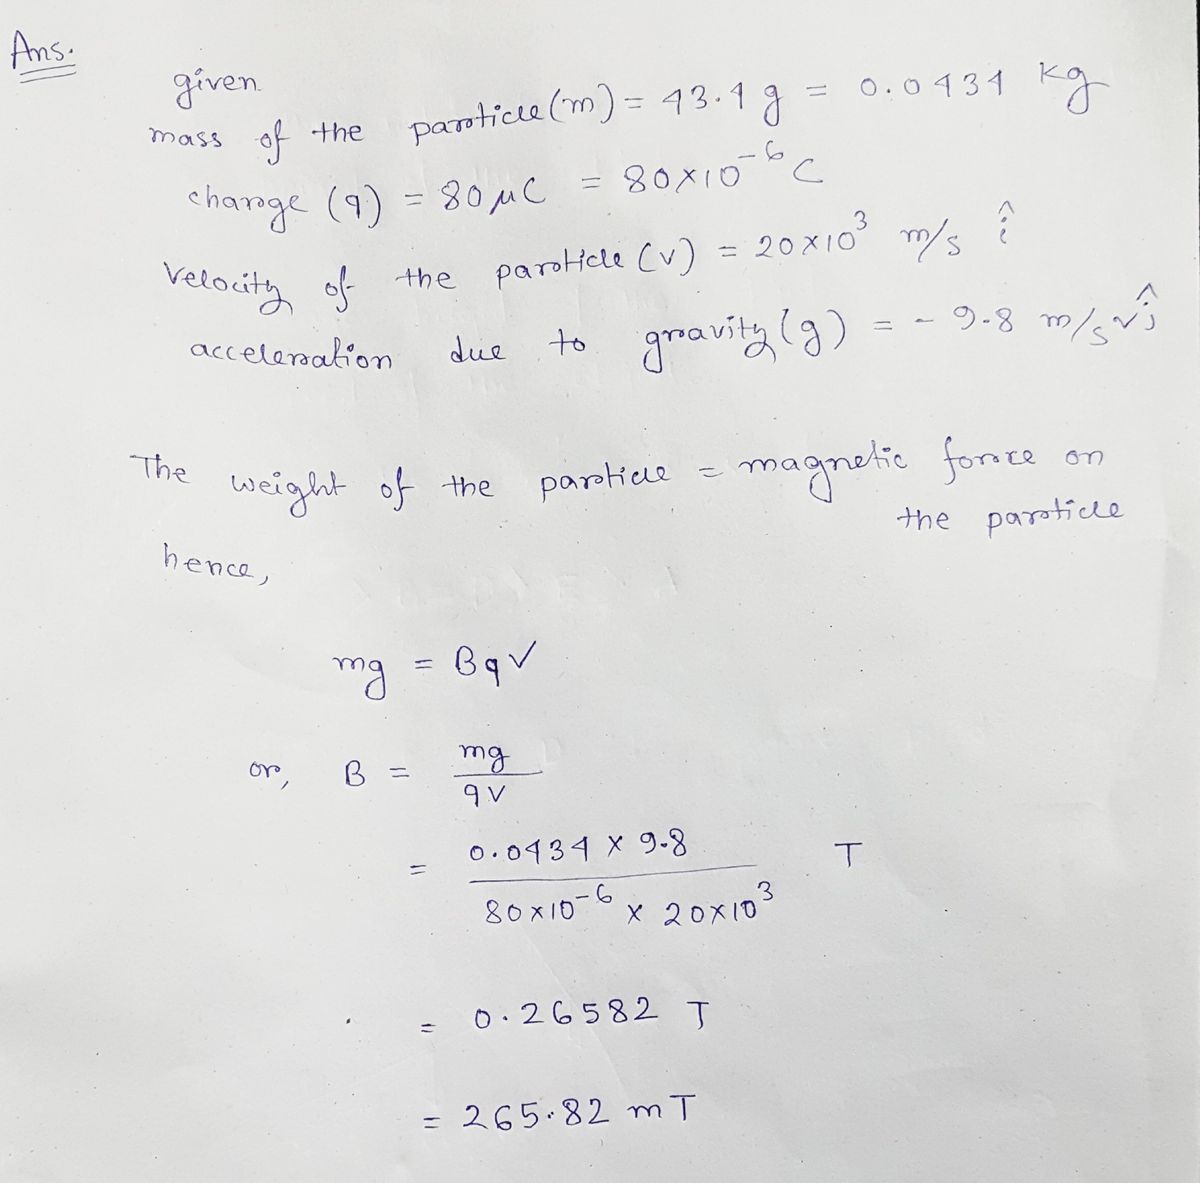 Ans.
given
mass of the particle (m) = 43.4 g = 0.0434 kg
charge (q) = 80 μC = 80×10⁻⁶ C
velocity of the particle (v) = 20×10³ m/s î
acceleration due to gravity (g) = - 9.8 m/s² ĵ
The weight of the particle = magnetic force on
the particle
hence,
mg = Bqv
or, B = mg / qv
= 0.0434 × 9.8 / 80×10⁻⁶ × 20×10³ T
= 0.26582 T
= 265.82 mT